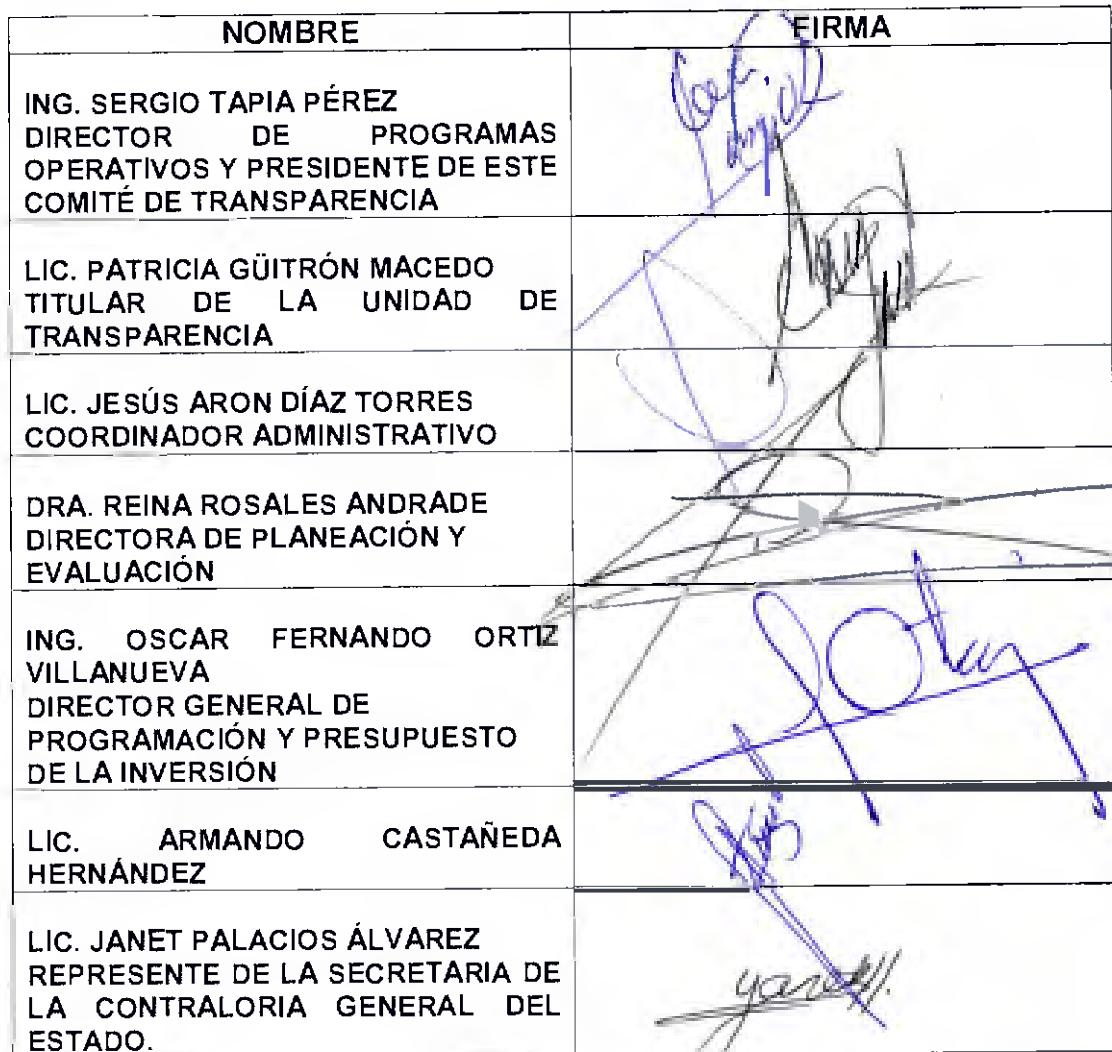 NOMBRE FIRMA
ING. SERGIO TAPIA PÉREZ
DIRECTOR DE PROGRAMAS
OPERATIVOS Y PRESIDENTE DE ESTE
COMITÉ DE TRANSPARENCIA
LIC. PATRICIA GÜITRÓN MACEDO
TITULAR DE LA UNIDAD DE
TRANSPARENCIA
LIC. JESÚS ARON DÍAZ TORRES
COORDINADOR ADMINISTRATIVO
DRA. REINA ROSALES ANDRADE
DIRECTORA DE PLANEACIÓN Y
EVALUACIÓN
ING. OSCAR FERNANDO ORTIZ
VILLANUEVA
DIRECTOR GENERAL DE
PROGRAMACIÓN Y PRESUPUESTO
DE LA INVERSIÓN
LIC. ARMANDO CASTAÑEDA
HERNÁNDEZ
LIC. JANET PALACIOS ÁLVAREZ
REPRESENTE DE LA SECRETARIA DE
LA CONTRALORIA GENERAL DEL
ESTADO.